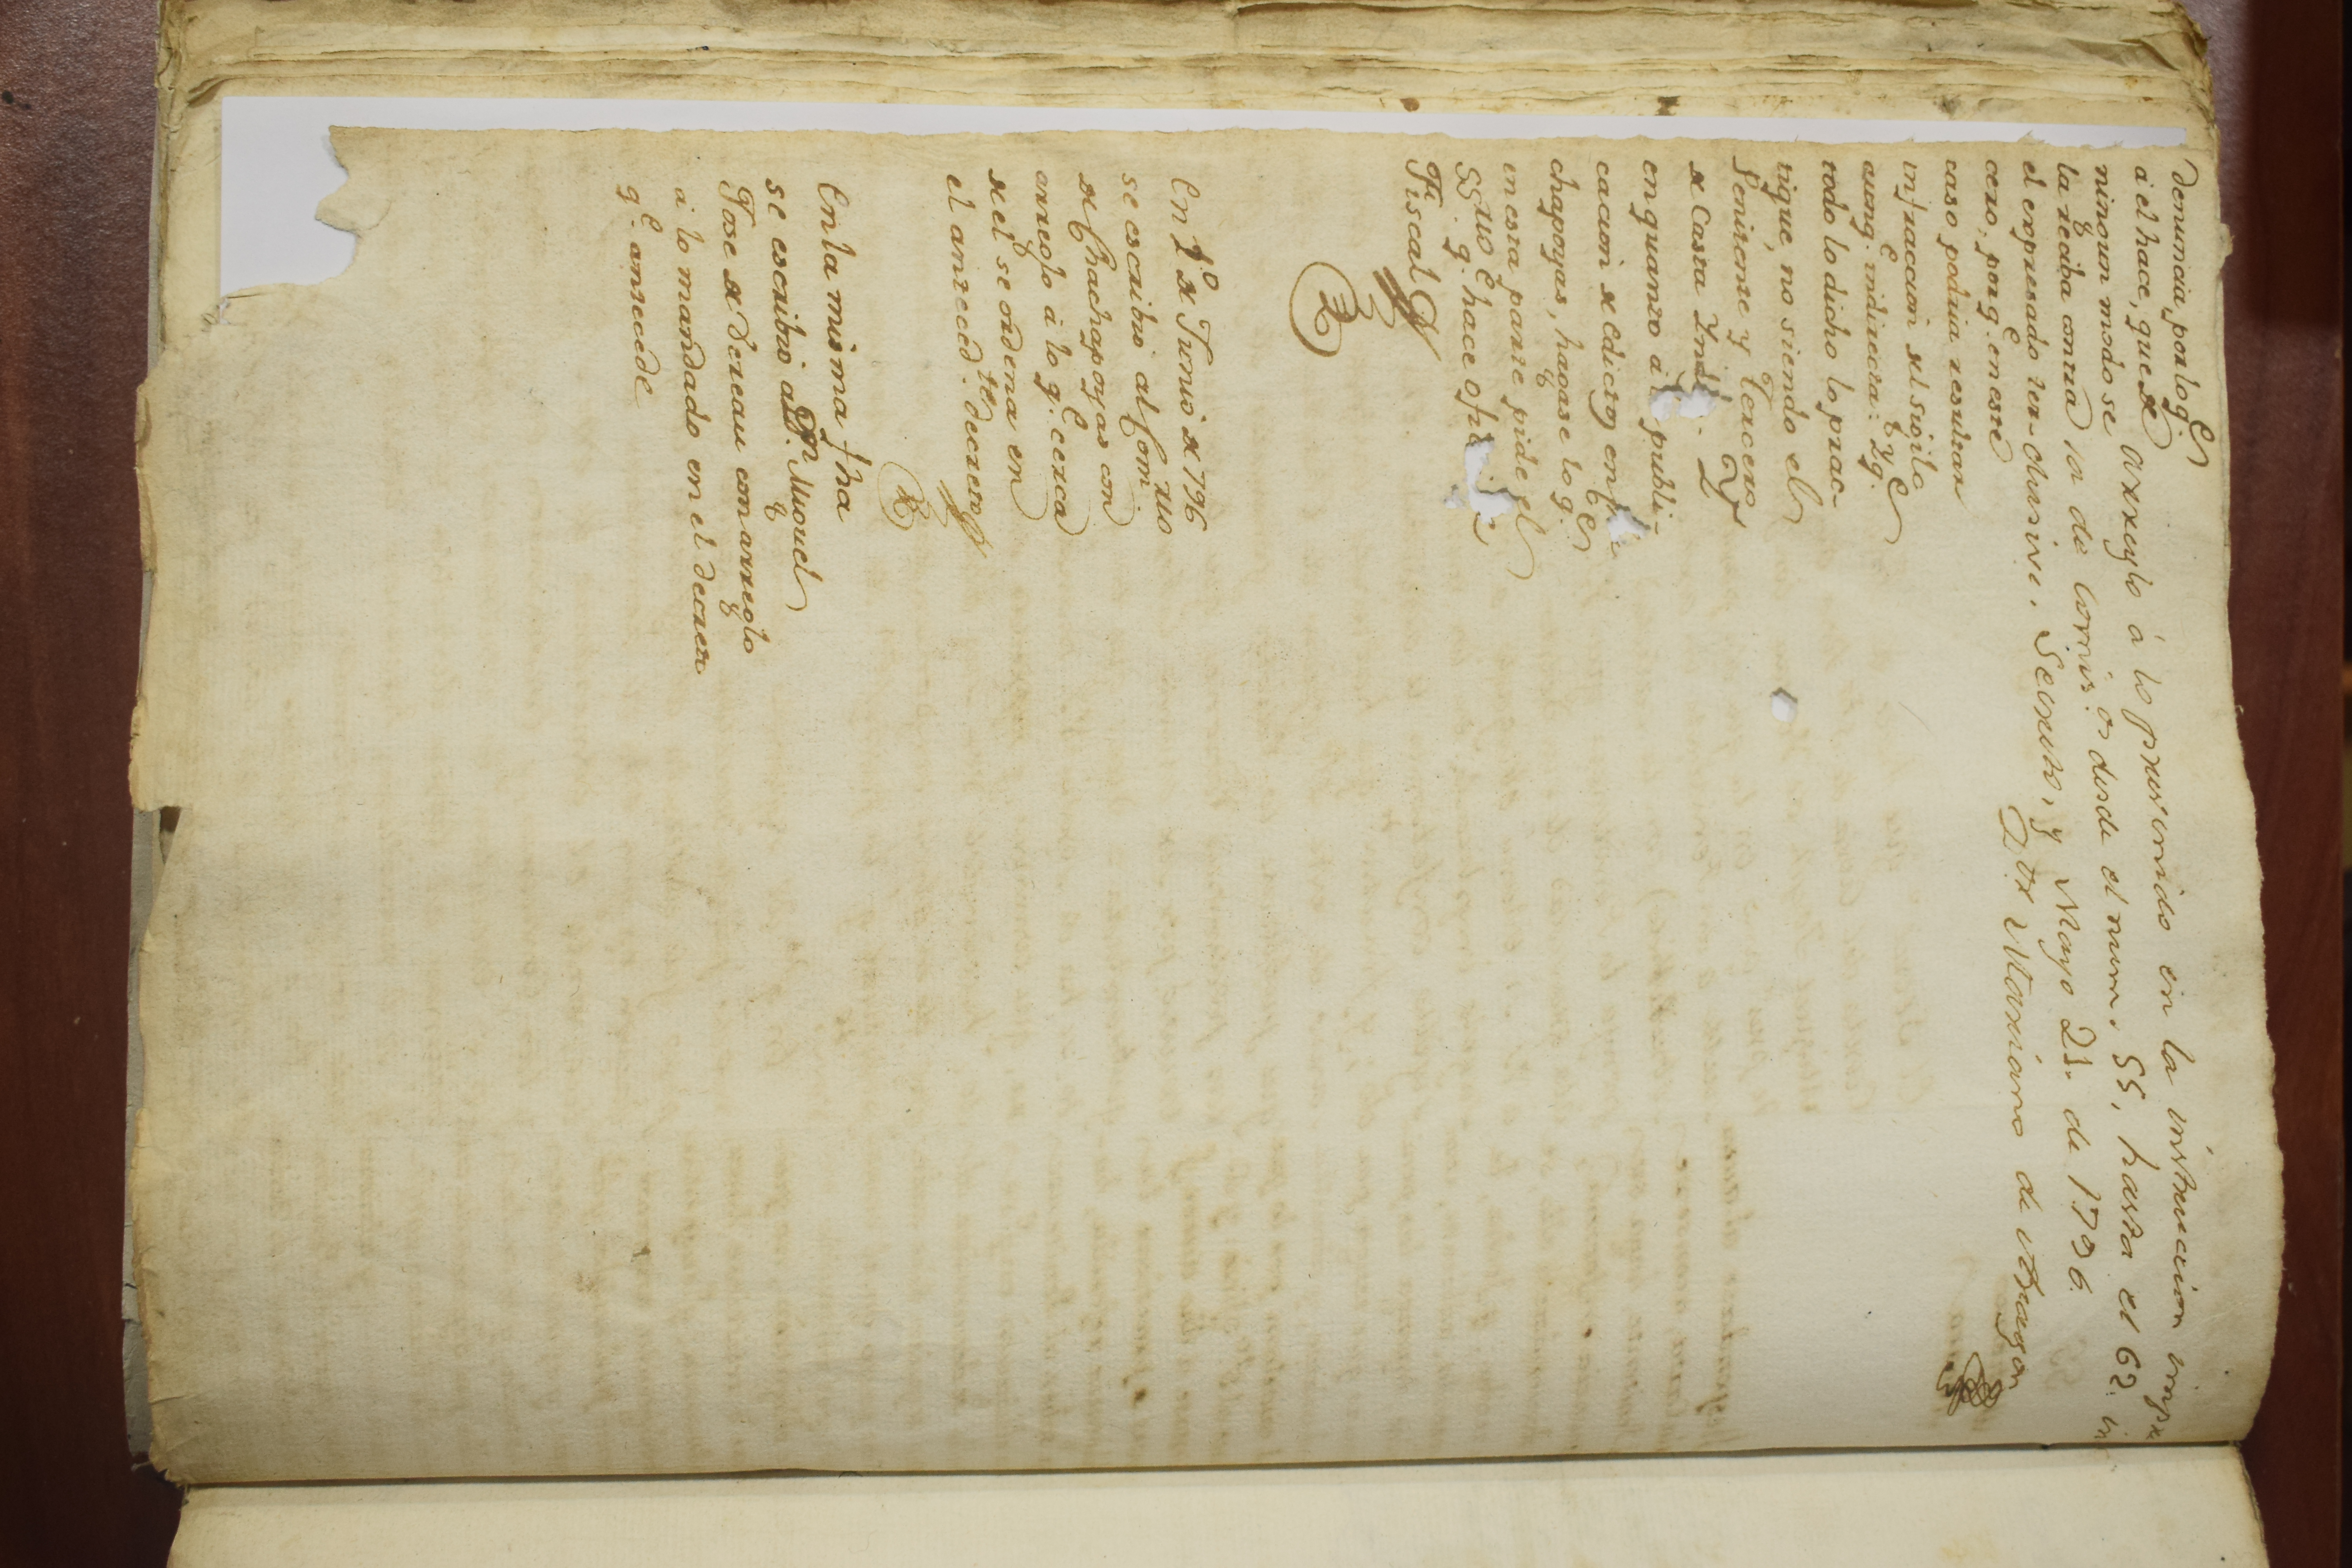 denuncia, por lo q.e
à él hace, que de
ningun modo se
la reciba contra
el expresado ter-
cero, porq.e en este
caso podria resultar
infraccion del sigilo
aunq.e indirecta: Y q.e
todo lo dicho lo prac-
tique, no siendo el
Penitente y Tercero
de Casta Ind. Y
en quanto à publi-
cacion de Edictos en
chapoyas, hagase lo q.e
en esta parte pide el
SS.rio q.e hace
Fiscal
En 1.o de Junio de 796
se escribio al Com.rio
de Chachapoyas con
arreglo à lo q.e cerca
de el se ordena en
el anteced.te decreto
En la misma fha
se escribio al P. Miguel
Jose de Bereau con arreglo
à lo mandado en el decreto
q.e antecede
arreglo á lo prevenido en la instruccion impre
ia de Comis.os desde el num. 55, hasta el 62. in
clusive. Secreto, y Mayo 21. de 1796.
D.or Mariano de Aragon